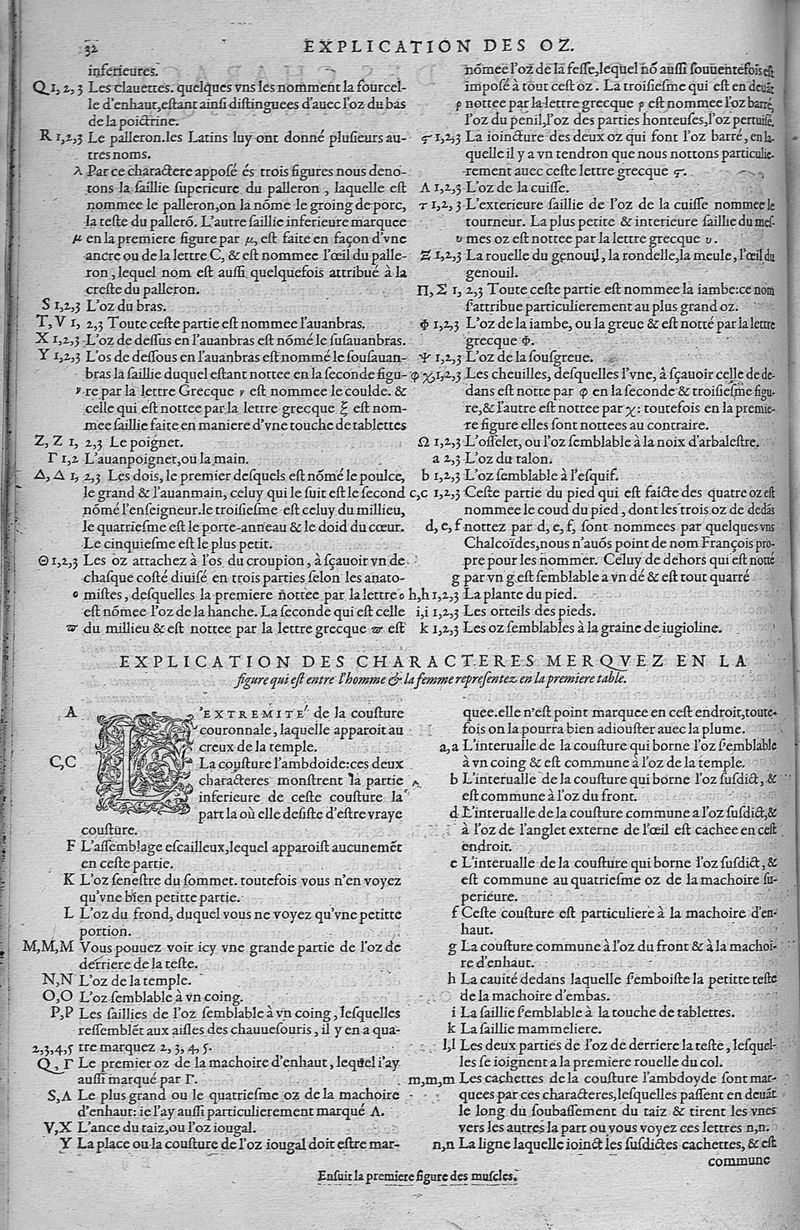 32
EXPLICATION DES OZ.
inferieures.
Q 1, 2, 3 Les clauettes. quelques vns les nomment la fourcel-
le d'enhaut, estant ainsi distinguees d'auec l'oz du bas
de la poictrine.
R 1,2,3 Le palleron. les Latins luy ont donné plusieurs au-
tres noms.
λ Par ce charactere apposé és trois figures nous deno-
tons la saillie superieure du palleron, laquelle est
nommee le palleron, on la nõme le groing de porc,
la teste du pallerõ. L'autre saillie inferieure marquee
μ en la premiere figure par μ, est faite en façon d'vne
ancre ou de la lettre C, & est nommee l'œil du palle-
ron, lequel nom est aussi quelquefois attribué à la
creste du palleron.
S 1,2,3 L'oz du bras.
T, V 1, 2,3 Toute ceste partie est nommee l'auanbras.
X 1,2,3 L'oz de dessus en l'auanbras est nõmé le susauanbras.
Y 1,2,3 L'os de dessous en l'auanbras est nommé le sousauan-
bras la saillie duquel estant nottee en la seconde figu-
ν re par la lettre Grecque ν est nommee le coulde. &
celle qui est nottee par la lettre grecque ξ est nom-
mee saillie faite en maniere d'vne touche de tablettes
Z, Z 1, 2,3 Le poignet.
Γ 1,2 L'auanpoignet, ou la main.
Δ, Δ 1, 2,3 Les dois, le premier desquels est nõmé le poulce,
le grand & l'auanmain, celuy qui le suit est le second
nõmé l'enseigneur. le troisiesme est celuy du milieu,
le quatriesme est le porte-anneau & le doid du cœur.
Le cinquiesme est le plus petit.
Θ 1,2,3 Les oz attachez à l'os du croupion, à sçauoir vn de
chasque costé diuisé en trois parties selon les anato-
ο mistes, desquelles la premiere nottee par la lettre ο
est nõmee l'oz de la hanche. La seconde qui est celle
ϖ du millieu & est nottee par la lettre grecque ϖ est
nõmee l'oz de la fesse, lequel nõ aussi souuentefois est
imposé à tout cest oz. La troisiesme qui est en deuãt
ρ nottee par la lettre grecque ρ est nommee l'oz barré,
l'oz du penil, l'oz des parties honteuses, l'oz pertuisé.
ϛ 1,2,3 La ioincture des deux oz qui font l'oz barré, en la-
quelle il y a vn tendron que nous nottons particulie-
rement auec ceste lettre grecque ϛ.
Λ 1,2,3 L'oz de la cuisse.
τ 1, 2, 3 L'exterieure saillie de l'oz de la cuisse nommee le
tourneur. La plus petite & interieure saillie du mes-
υ mes oz est nottee par la lettre grecque υ.
Ξ 1,2,3 La rouelle du genouil, la rondelle, la meule, l'œil du
genouil.
Π, Σ 1, 2,3 Toute ceste partie est nommee la iambe: ce nom
s'attribue particulierement au plus grand oz.
Φ 1,2,3 L'oz de la iambe, ou la greue & est notté par la lettre
grecque Φ.
Ψ 1,2,3 L'oz de la sousgreue.
φ χ 1,2,3 Les cheuilles, desquelles l'vne, à sçauoir celle de de-
dans est notte par φ en la seconde & troisiesme figu-
re, & l'autre est nottee par χ: toutefois en la premie-
re figure elles sont nottees au contraire.
Ω 1,2,3 L'osselet, ou l'oz semblable à la noix d'arbalestre.
a 2,3 L'oz du talon.
b 1,2,3 L'oz semblable à l'esquif.
c,c 1,2,3 Ceste partie du pied qui est faicte des quatre oz est
nommee le coud du pied, dont les trois oz de dedãs
d, e, f nottez par d, e, f, sont nommees par quelques vns
Chalcoïdes, nous n'auõs point de nom François pro-
pre pour les nommer. Celuy de dehors qui est notté
g par vn g est semblable a vn dé & est tout quarré
h,h 1,2,3 La plante du pied.
i,i 1,2,3 Les orteils des pieds.
k 1,2,3 Les oz semblables à la graine de iugioline.
EXPLICATION DES CHARACTERES MERQVEZ EN LA
figure qui est entre l'homme & la femme representez en la premiere table.
A L'EXTREMITE' de la cousture
couronnale, laquelle apparoit au
creux de la temple.
C,C La cousture l'ambdoide: ces deux
characteres monstrent la partie
inferieure de ceste cousture la
part la où elle desiste d'estre vraye
cousture.
F L'assemblage escailleux, lequel apparoist aucunemẽt
en ceste partie.
K L'oz senestre du sommet. toutefois vous n'en voyez
qu'vne bien petitte partie.
L L'oz du frond, duquel vous ne voyez qu'vne petitte
portion.
M,M,M Vous pouuez voir icy vne grande partie de l'oz de
derriere de la teste.
N,N L'oz de la temple.
O,O L'oz semblable à vn coing.
P,P Les saillies de l'oz semblable à vn coing, lesquelles
ressemblẽt aux aisles des chauuesouris, il y en a qua-
2,3,4,5 tre marquez 2, 3, 4, 5.
Q, Γ Le premier oz de la machoire d'enhaut, lequel i'ay
aussi marqué par Γ.
S,Λ Le plus grand ou le quatriesme oz de la machoire
d'enhaut: ie l'ay aussi particulierement marqué Λ.
V,X L'ance du taiz, ou l'oz iougal.
Y La place ou la cousture de l'oz iougal doit estre mar-
quee. elle n'est point marquee en cest endroit, toute-
fois on la pourra bien adiouster auec la plume.
a,a L'interualle de la cousture qui borne l'oz semblable
à vn coing & est commune à l'oz de la temple.
b L'interualle de la cousture qui borne l'oz susdict, &
est commune à l'oz du front.
d L'interualle de la cousture commune a l'oz susdict, &
à l'oz de l'anglet externe de l'œil est cachee en cest
endroit.
e L'interualle de la cousture qui borne l'oz susdict, &
est commune au quatriesme oz de la machoire su-
perieure.
f Ceste cousture est particuliere à la machoire d'en-
haut.
g La cousture commune à l'oz du front & à la machoi-
re d'enhaut.
h La cauité dedans laquelle s'emboiste la petitte teste
de la machoire d'embas.
i La saillie semblable à la touche de tablettes.
k La saillie mammeliere.
l,l Les deux parties de l'oz de derriere la teste, lesquel-
les se ioignent a la premiere rouelle du col.
m,m,m Les cachettes de la cousture l'ambdoyde sont mar-
quees par ces characteres, lesquelles passent en deuãt
le long du soubassement du taiz & tirent les vnes
vers les autres la part ou vous voyez ces lettres n,n.
n,n La ligne laquelle ioinct les susdictes cachettes, & est
commune
Ensuit la premiere figure des muscles.